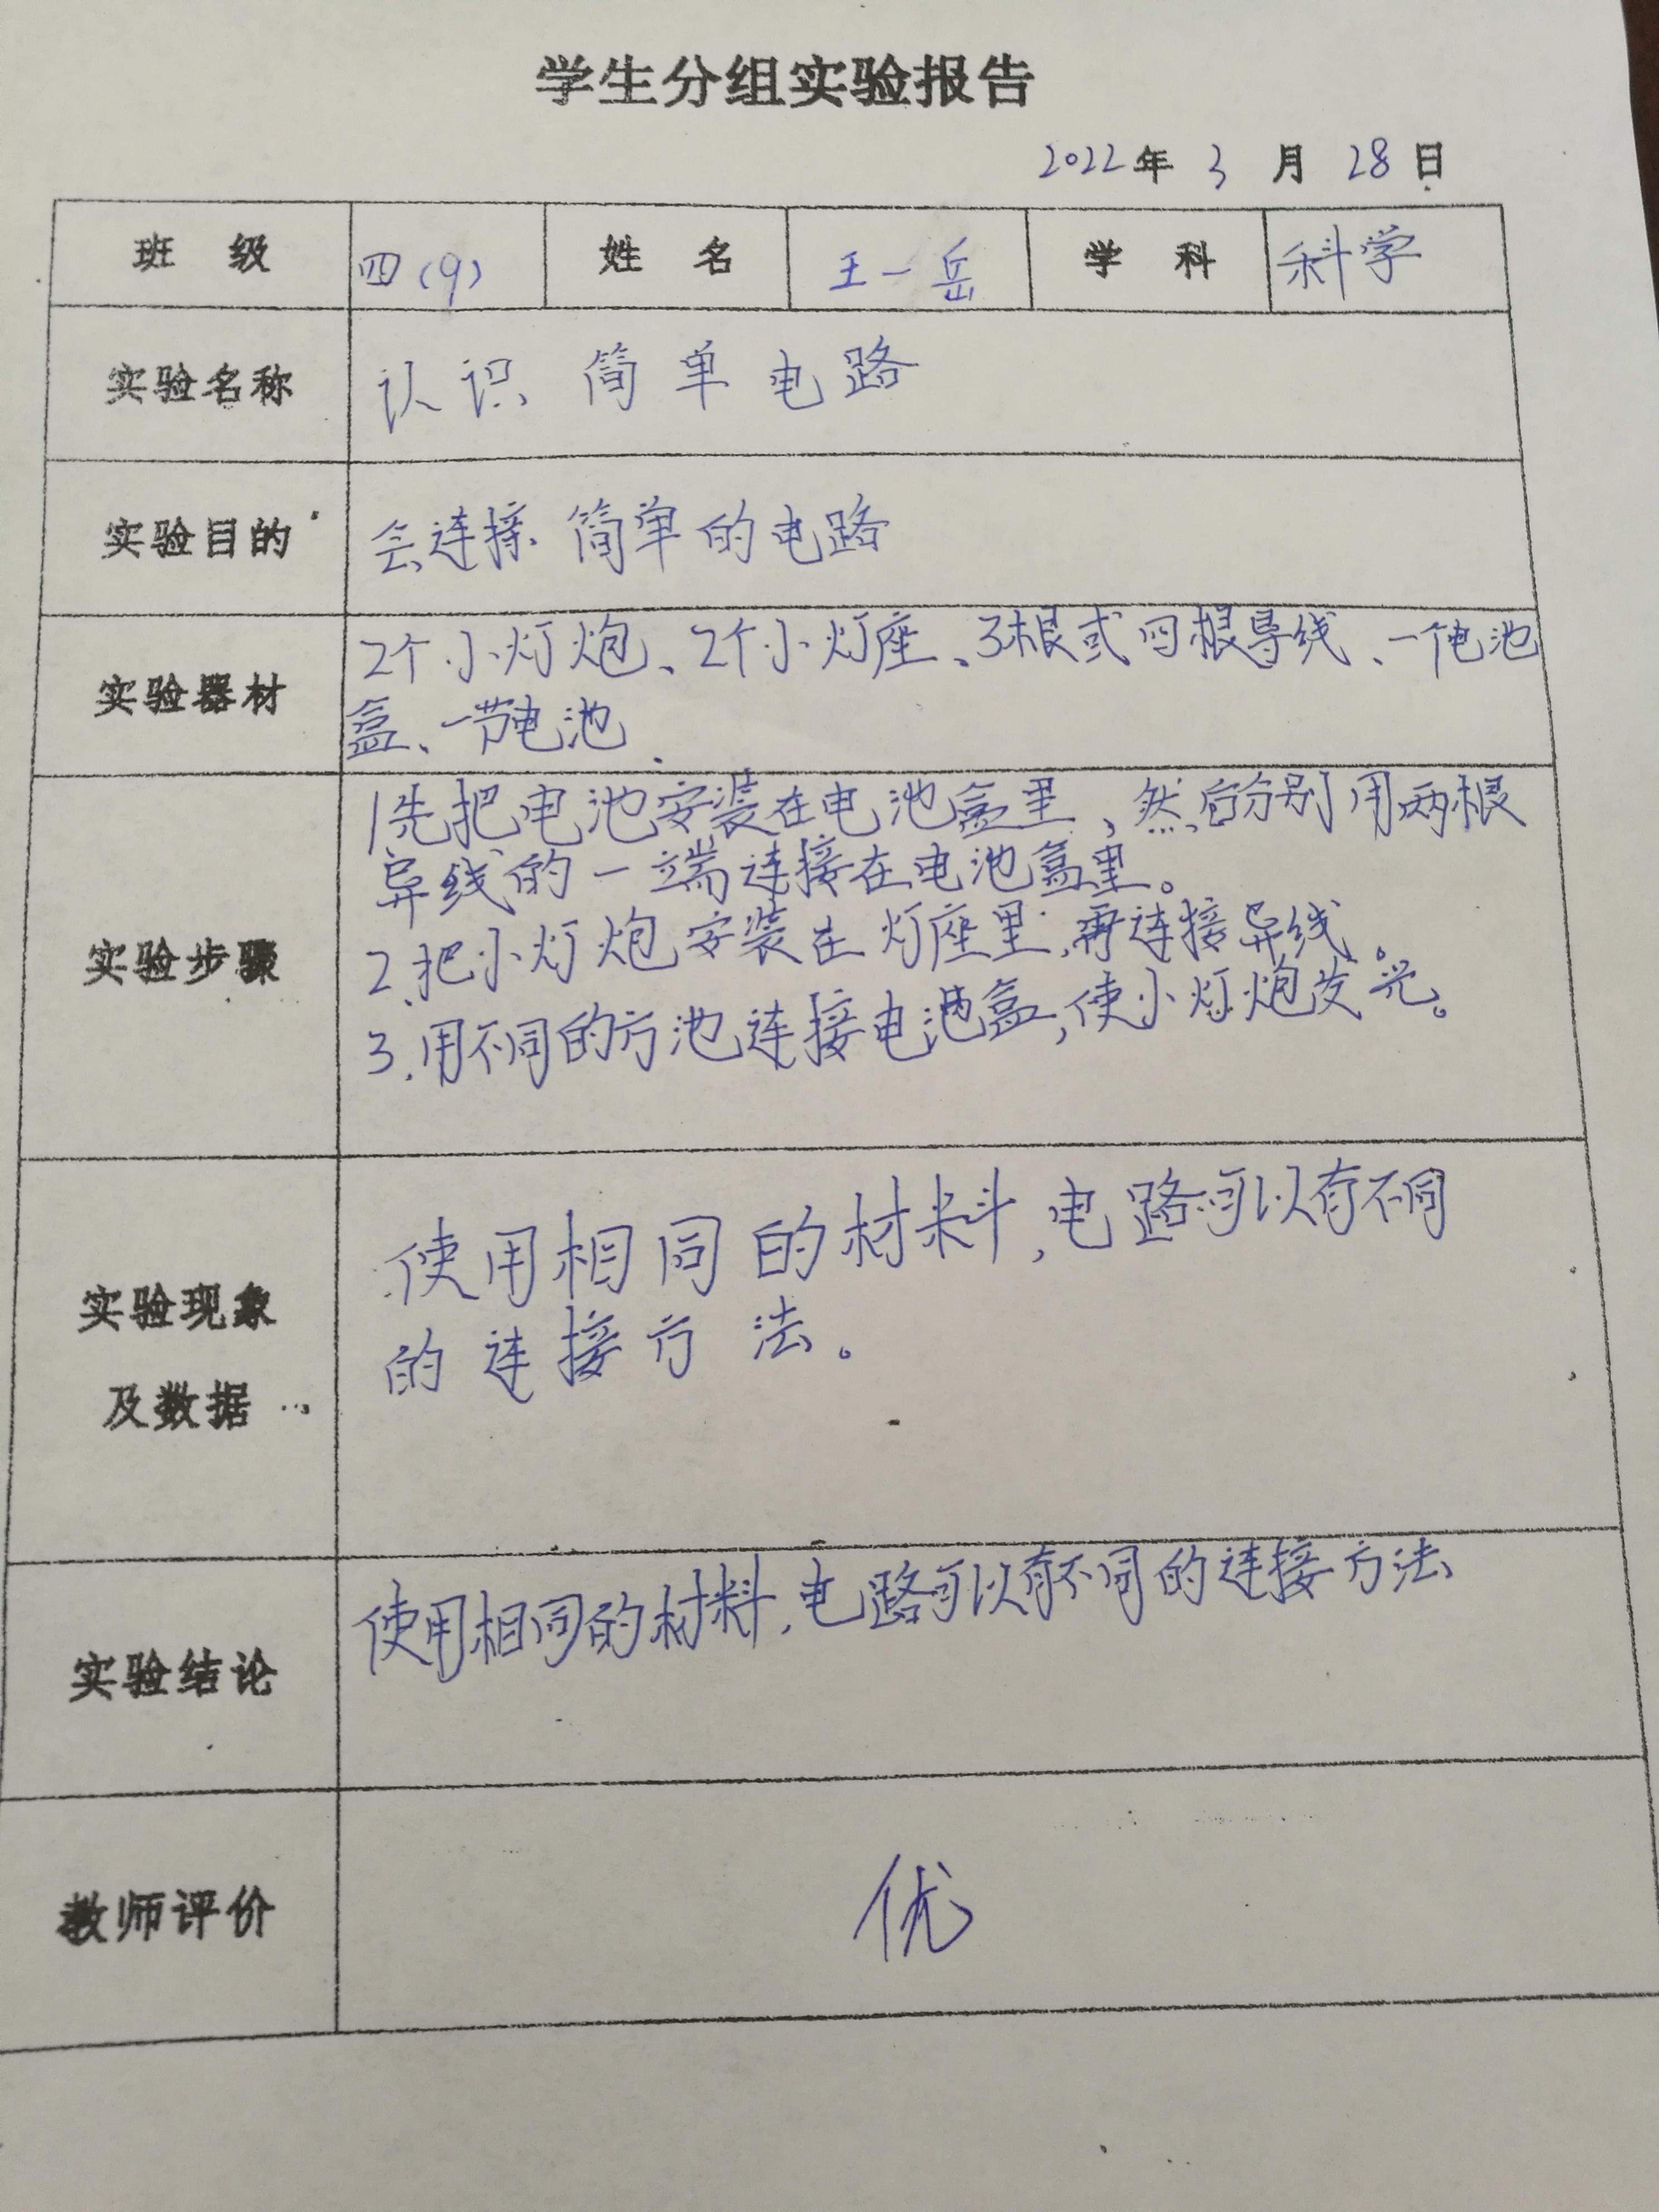 学生分组实验报告
2022年 3 月 28日
班 级 四(9) 姓 名 王一岳 学 科 科学
实验名称 认识简单电路
实验目的 会连接简单的电路
2个小灯炮、2个小灯座、3根或四根导线、一个电池
实验器材
盒、一节电池
1先把电池安装在电池盒里,然后分别用两根
导线的一端连接在电池盒里。
实验步骤 2.把小灯炮安装在灯座里,再连接导线。
3.用不同的方池连接电池盒,使小灯炮发光。
使用相同的材料,电路可以有不同
实验现象
的连接方法。
及数据
使用相同的材料,电路可以有不同的连接方法
实验结论
教师评价 优